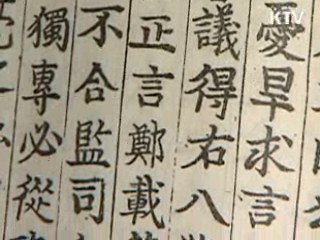 愛早求言
議得右八
正言鄭載
不合監司
獨專必從
KTV